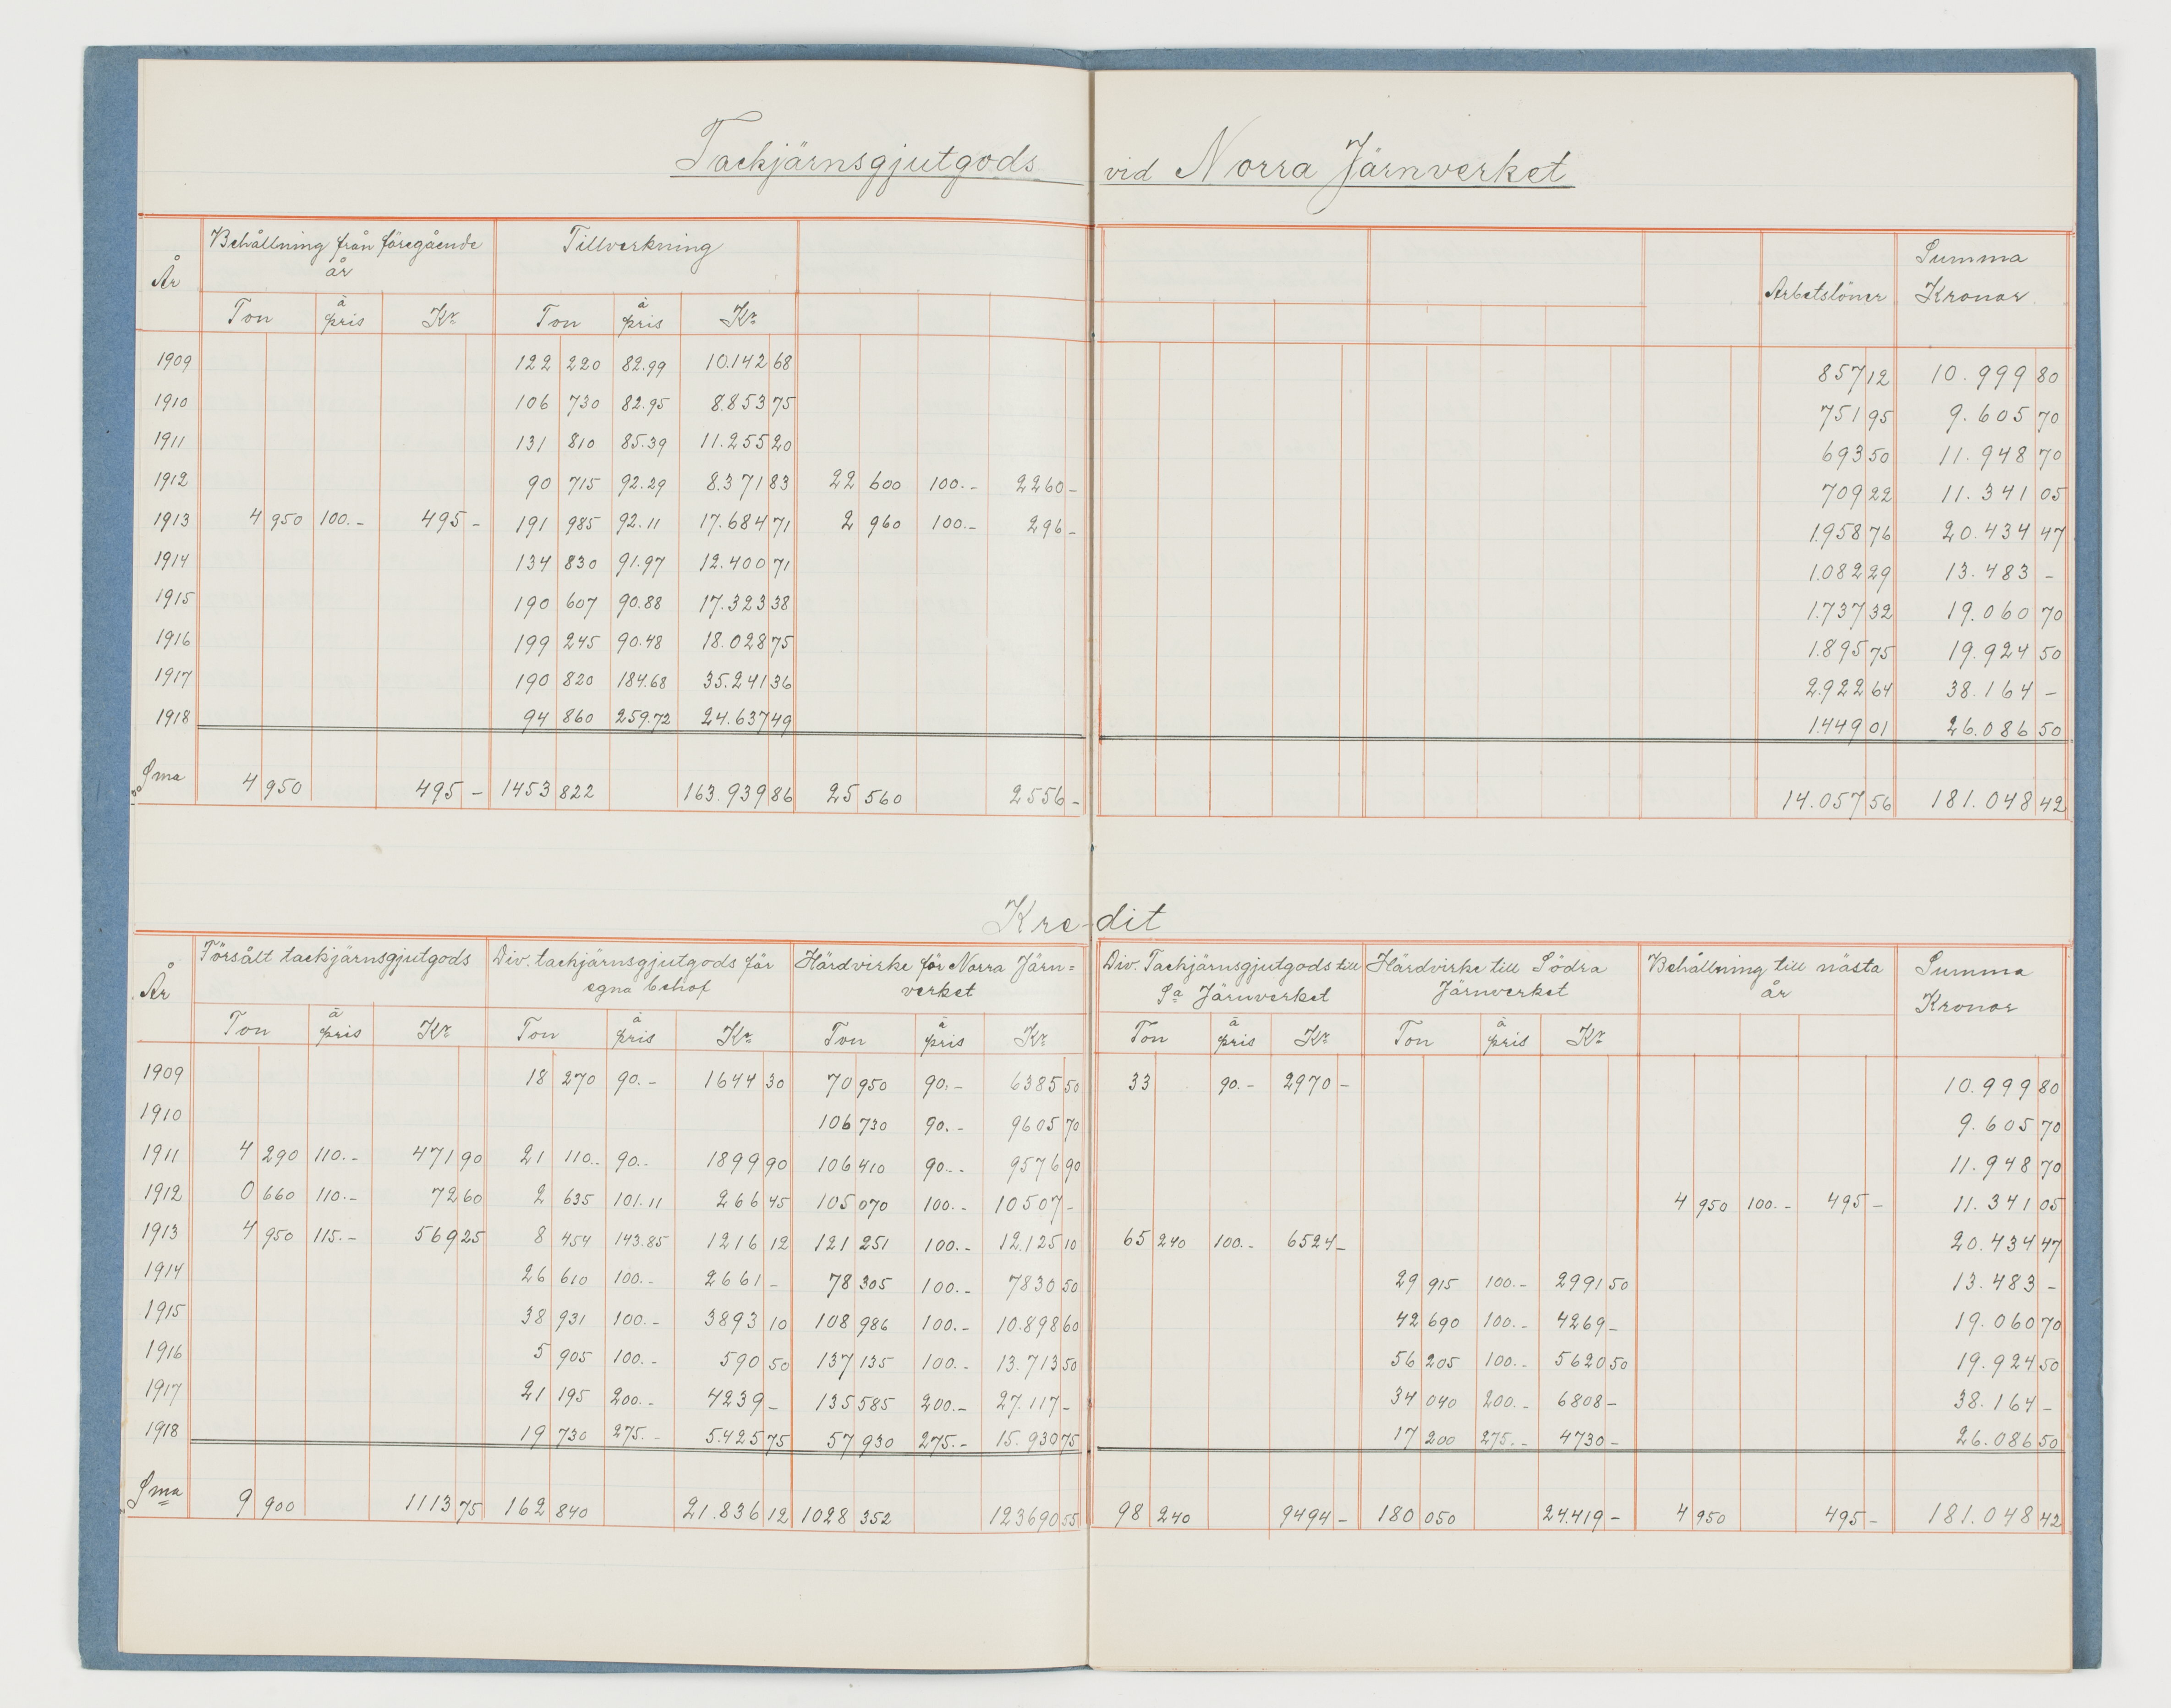 Tackjärnsgjutgods vid Norra Järnverket
År Behållning från föregående år Tillverkning Arbetslöner Summa Kronor
Ton à pris Kr Ton à pris Kr
1909 122 220 82.99 10.142 68 857 12 10.999 80
1910 106 730 82.95 8.853 75 751 95 9.605 70
1911 131 810 85.39 11.255 20 693 50 11.948 70
1912 90 715 92.29 8.371 83 22 600 100.- 2260 - 709 22 11.341 05
1913 4 950 100.- 495 - 191 985 92.11 17.684 71 2 960 100.- 296 - 1.958 76 20.434 47
1914 134 830 91.97 12.400 71 1.082 29 13.483 -
1915 190 607 90.88 17.323 38 1.737 32 19.060 70
1916 199 245 90.48 18.028 75 1.895 75 19.924 50
1917 190 820 184.68 35.241 36 2.922 64 38.164 -
1918 94 860 259.72 24.637 49 1.449 01 26.086 50
Sma 4 950 495 - 1453 822 163.939 86 25 560 2556 - 14.057 56 181.048 42
Kredit
År Försålt tackjärnsgjutgods Div. tackjärnsgjutgods för egna behof Härdvirke för Norra Järn= verket Div. Tackjärnsgjutgods till Sa Järnverket Härdvirke till Södra Järnverket Behållning till nästa år Summa Kronor
Ton à pris Kr Ton à pris Kr Ton à pris Kr Ton à pris Kr Ton à pris Kr
1909 18 270 90.- 1644 30 70 950 90.- 6385 50 33 90.- 2970 - 10.999 80
1910 106 730 90.- 9605 70 9.605 70
1911 4 290 110.- 471 90 21 110.. 90.- 1899 90 106 410 90.- 9576 90 11.948 70
1912 0 660 110.- 72 60 2 635 101.11 266 45 105 070 100.- 10507 - 4 950 100.- 495 - 11.341 05
1913 4 950 115.- 569 25 8 454 143.85 1216 12 121 251 100.- 12.125 10 65 240 100.- 6524 - 20.434 47
1914 26 610 100.- 2661 - 78 305 100.- 7830 50 29 915 100.- 2991 50 13.483 -
1915 38 931 100.- 3893 10 108 986 100.- 10.898 60 42 690 100.- 4269 - 19.060 70
1916 5 905 100.- 590 50 137 135 100.- 13.713 50 56 205 100.- 5620 50 19.924 50
1917 21 195 200.- 4239 - 135 585 200.- 27.117 - 34 040 200.- 6808 - 38.164 -
1918 19 730 275.- 5.425 75 57 930 275.- 15.930 75 17 200 275.- 4730 - 26.086 50
Sma 9 900 1113 75 162 840 21.836 12 1028 352 123690 55 98 240 9494 - 180 050 24.419 - 4 950 495 - 181.048 42